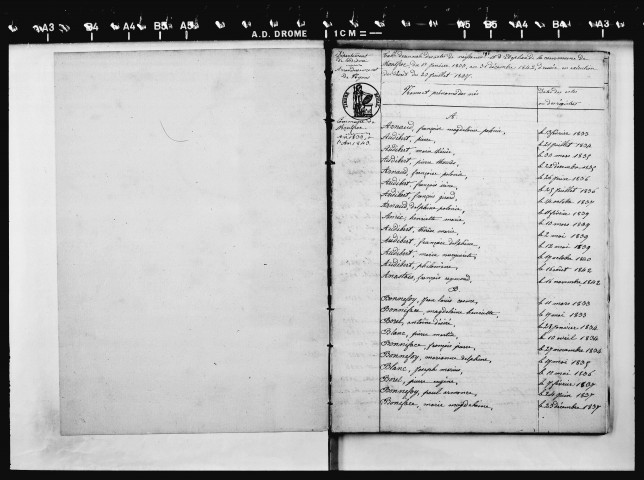 A3 B4 A4 B5 A5 A5 B5 A4 B4 A3
A.D. DROME 1CM
Département
de la Drôme
Arrondissement
de Nyons
Commune de
Montfroc
An 1833, à
l'An 1843.
Table décennale des actes de naissance et d'adoption de la commune de
Montfroc, du 1er janvier 1833, au 31 décembre 1842, dressée en exécution
du décret du 20 juillet 1807.
Noms et prénoms des nés
Dates des actes
ou des registres
A
Arnaud, françois magdeleine
le 13 février 1833
Audibert, pierre,
le 21 juillet 1834
Audibert, marie thérèse,
le 30 mars 1835
Audibert, pierre
le 22 décembre 1835
Arnaud, françoise polonie,
le 26 juin 1836
Audibert, françois
le 25 juillet 1836
Audibert, françois
le 14 octobre 1837
Arnaud, delphine polonie,
le février 1839
Amic, henriette marie,
le 10 mars 1839
Audibert, marie,
le 2 mai 1839
Audibert, françoise delphine,
le 12 mai 1839
Audibert, marie marguerite,
le 19 octobre 1840
Audibert, philomène,
le 16 août 1842
Anastase, françois raymond,
le 16 novembre 1842
B.
Bonnefoy, jean louis
le 11 mars 1833
Boniface, magdeleine henriette,
le 9 mai 1833
Borel, antoine désiré,
le 28 janvier 1834
Blanc, pierre martin,
le 12 avril 1834
Bonniface, françois pierre,
le 27 novembre 1834
Bonnefoy, marianne delphine,
le 19 mai 1835
Blanc, joseph marius,
le 12 mai 1836
Borel, pierre eugène,
le 9 février 1837
Bonnefoy, paul
le 24 juin 1837
Boniface, marie magdeleine,
le 23 décembre 1837